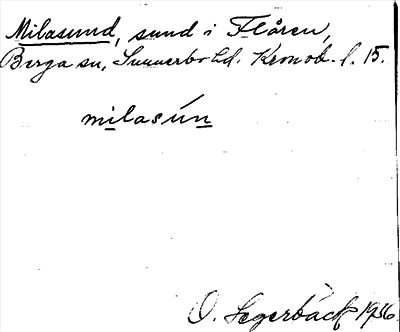 Milasund, sund i Flåren,
Berga sn, Sunnerbo hd. Kronob. l. 15.
milasún
O. Segerbäck 1936.